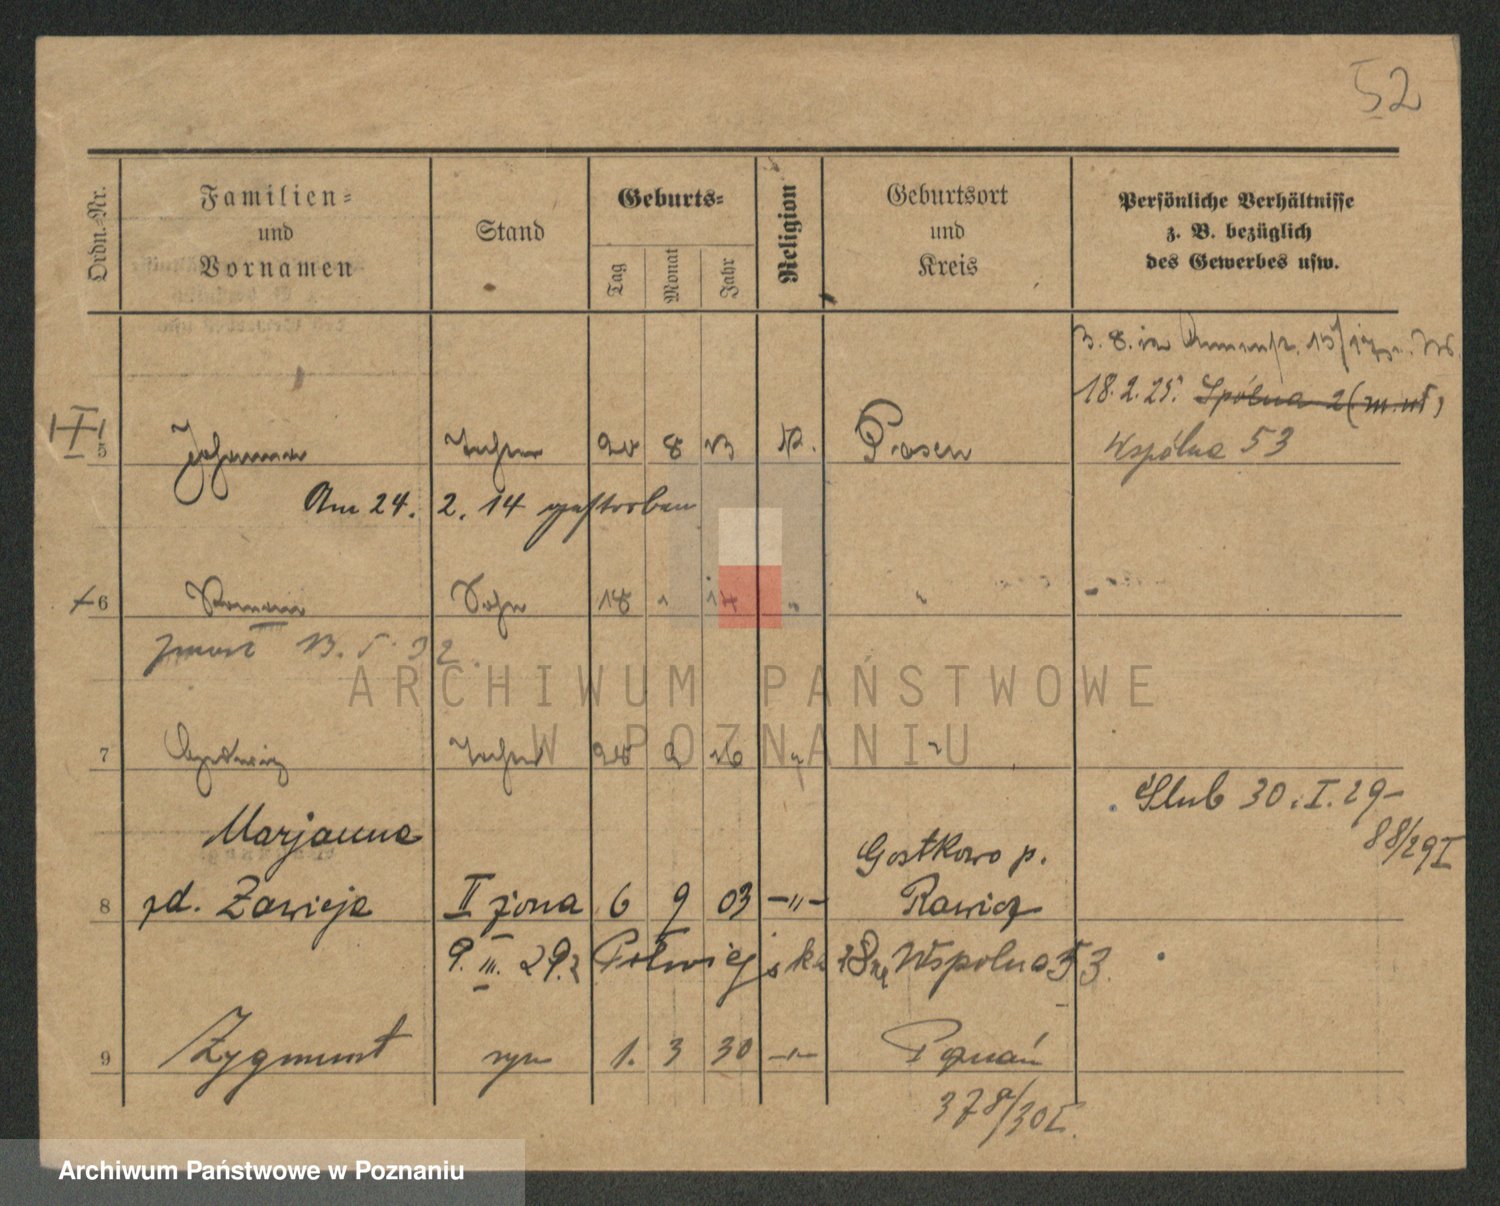 52
Ordn.-Nr.
Familien-
und
Vornamen
Stand
Geburts-
Tag
Monat
Jahr
Religion
Geburtsort
und
Kreis
Persönliche Verhältnisse
z. B. bezüglich
des Gewerbes usw.
18.2.25. Spólna 2
Wspólna 53
5 Johanna Tochter 20 8 13 K. Posen
Am 24. 2. 14 gestorben
6 Roman Sohn 18 " 14 " "
zmarł 13. 5. 32.
7 Tochter 2 " "
Ślub 30. I. 29-
88/29 I
Marjanna
Gostkowo p.
8 zd. Zawieja II żona 6 9 03 -"- Rawicz
9. III. 29. z Półwiejska Wspolna 53.
9 Zygmunt syn 1. 3 30 -"- Poznań
378/30 I.
ARCHIWUM PAŃSTWOWE
W POZNANIU
Archiwum Państwowe w Poznaniu